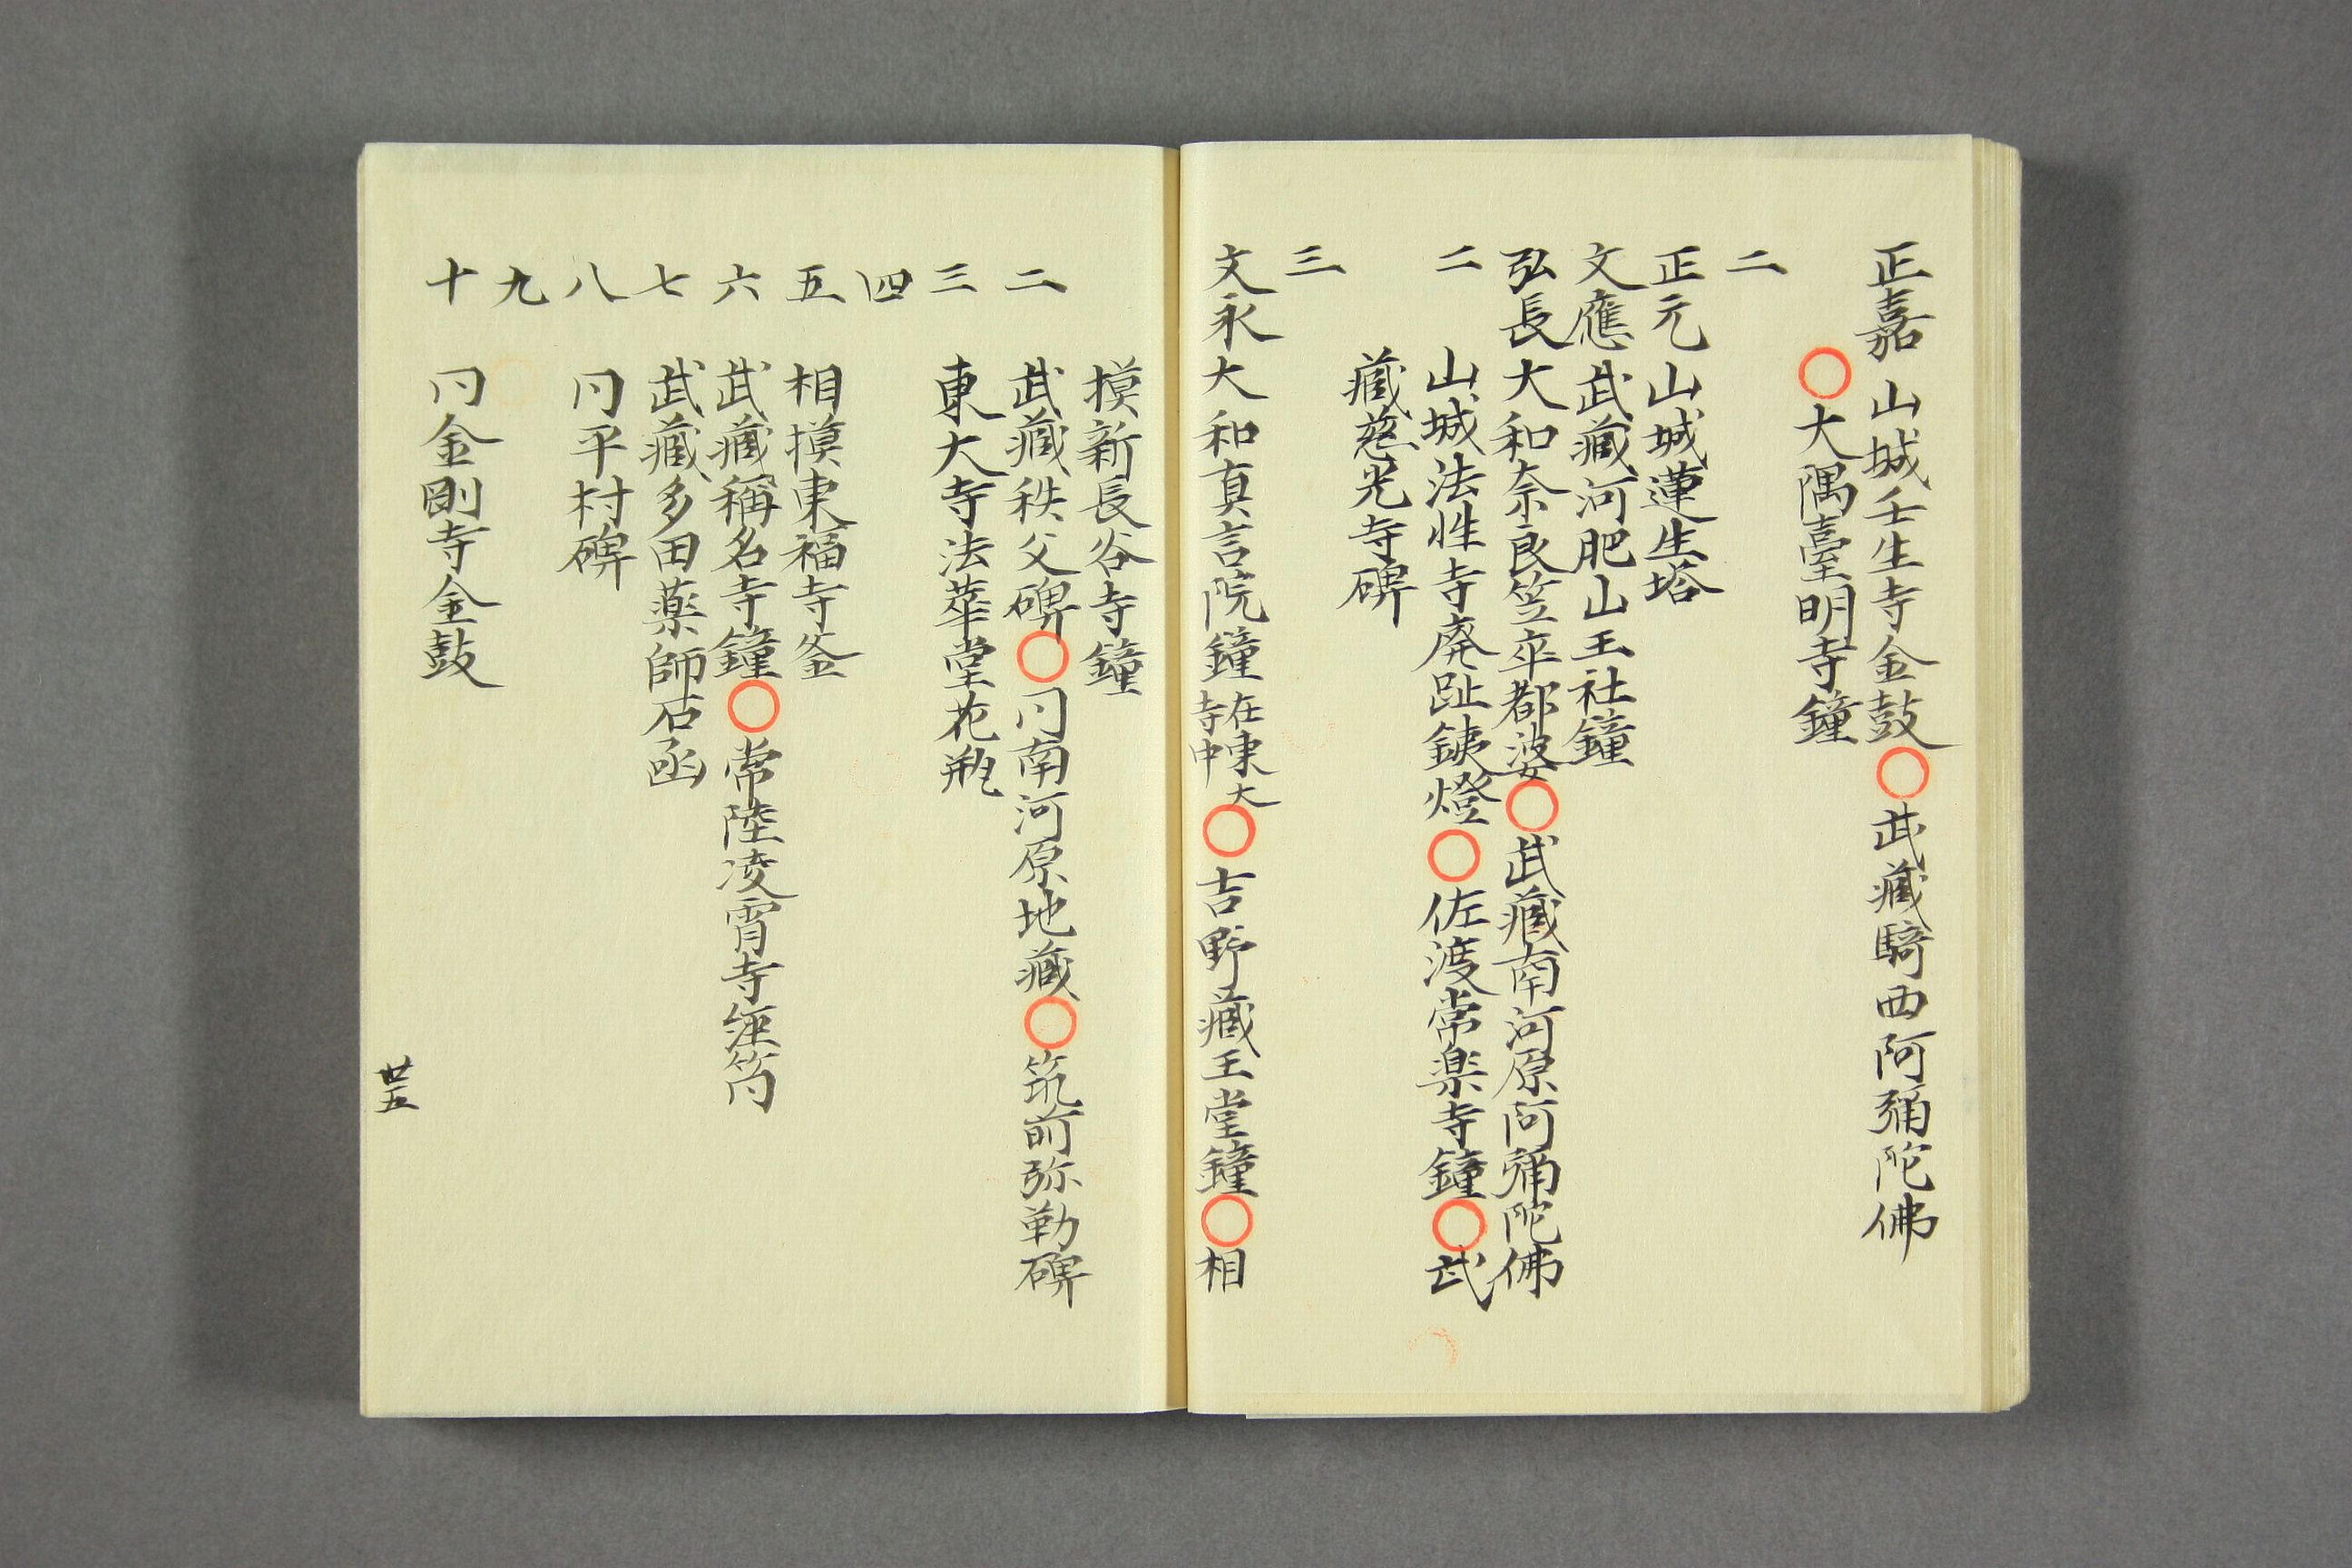 正嘉 山城壬生寺金鼓〇武藏騎西阿彌陀佛
〇大隅臺明寺鐘
二
正元 山城蓮生塔
文應 武藏河肥山王社鐘
弘長 大和奈良笠卒都婆〇武藏南河原阿彌陀佛
二 山城法性寺廃趾銕燈〇佐渡常楽寺鐘〇武
藏慈光寺碑
三
文永 大和真言院鐘在東大寺中〇吉野藏王堂鐘〇相
摸新長谷寺鐘
二 武藏秩父碑〇同南河原地藏〇筑前弥勒碑
三 東大寺法華堂花瓶
四
五 相摸東福寺釜
六 武藏稱名寺鐘〇常陸凌霄寺経筒
七 武藏多田薬師石函
八 同平村碑
九
十 同金剛寺金鼓
廿五